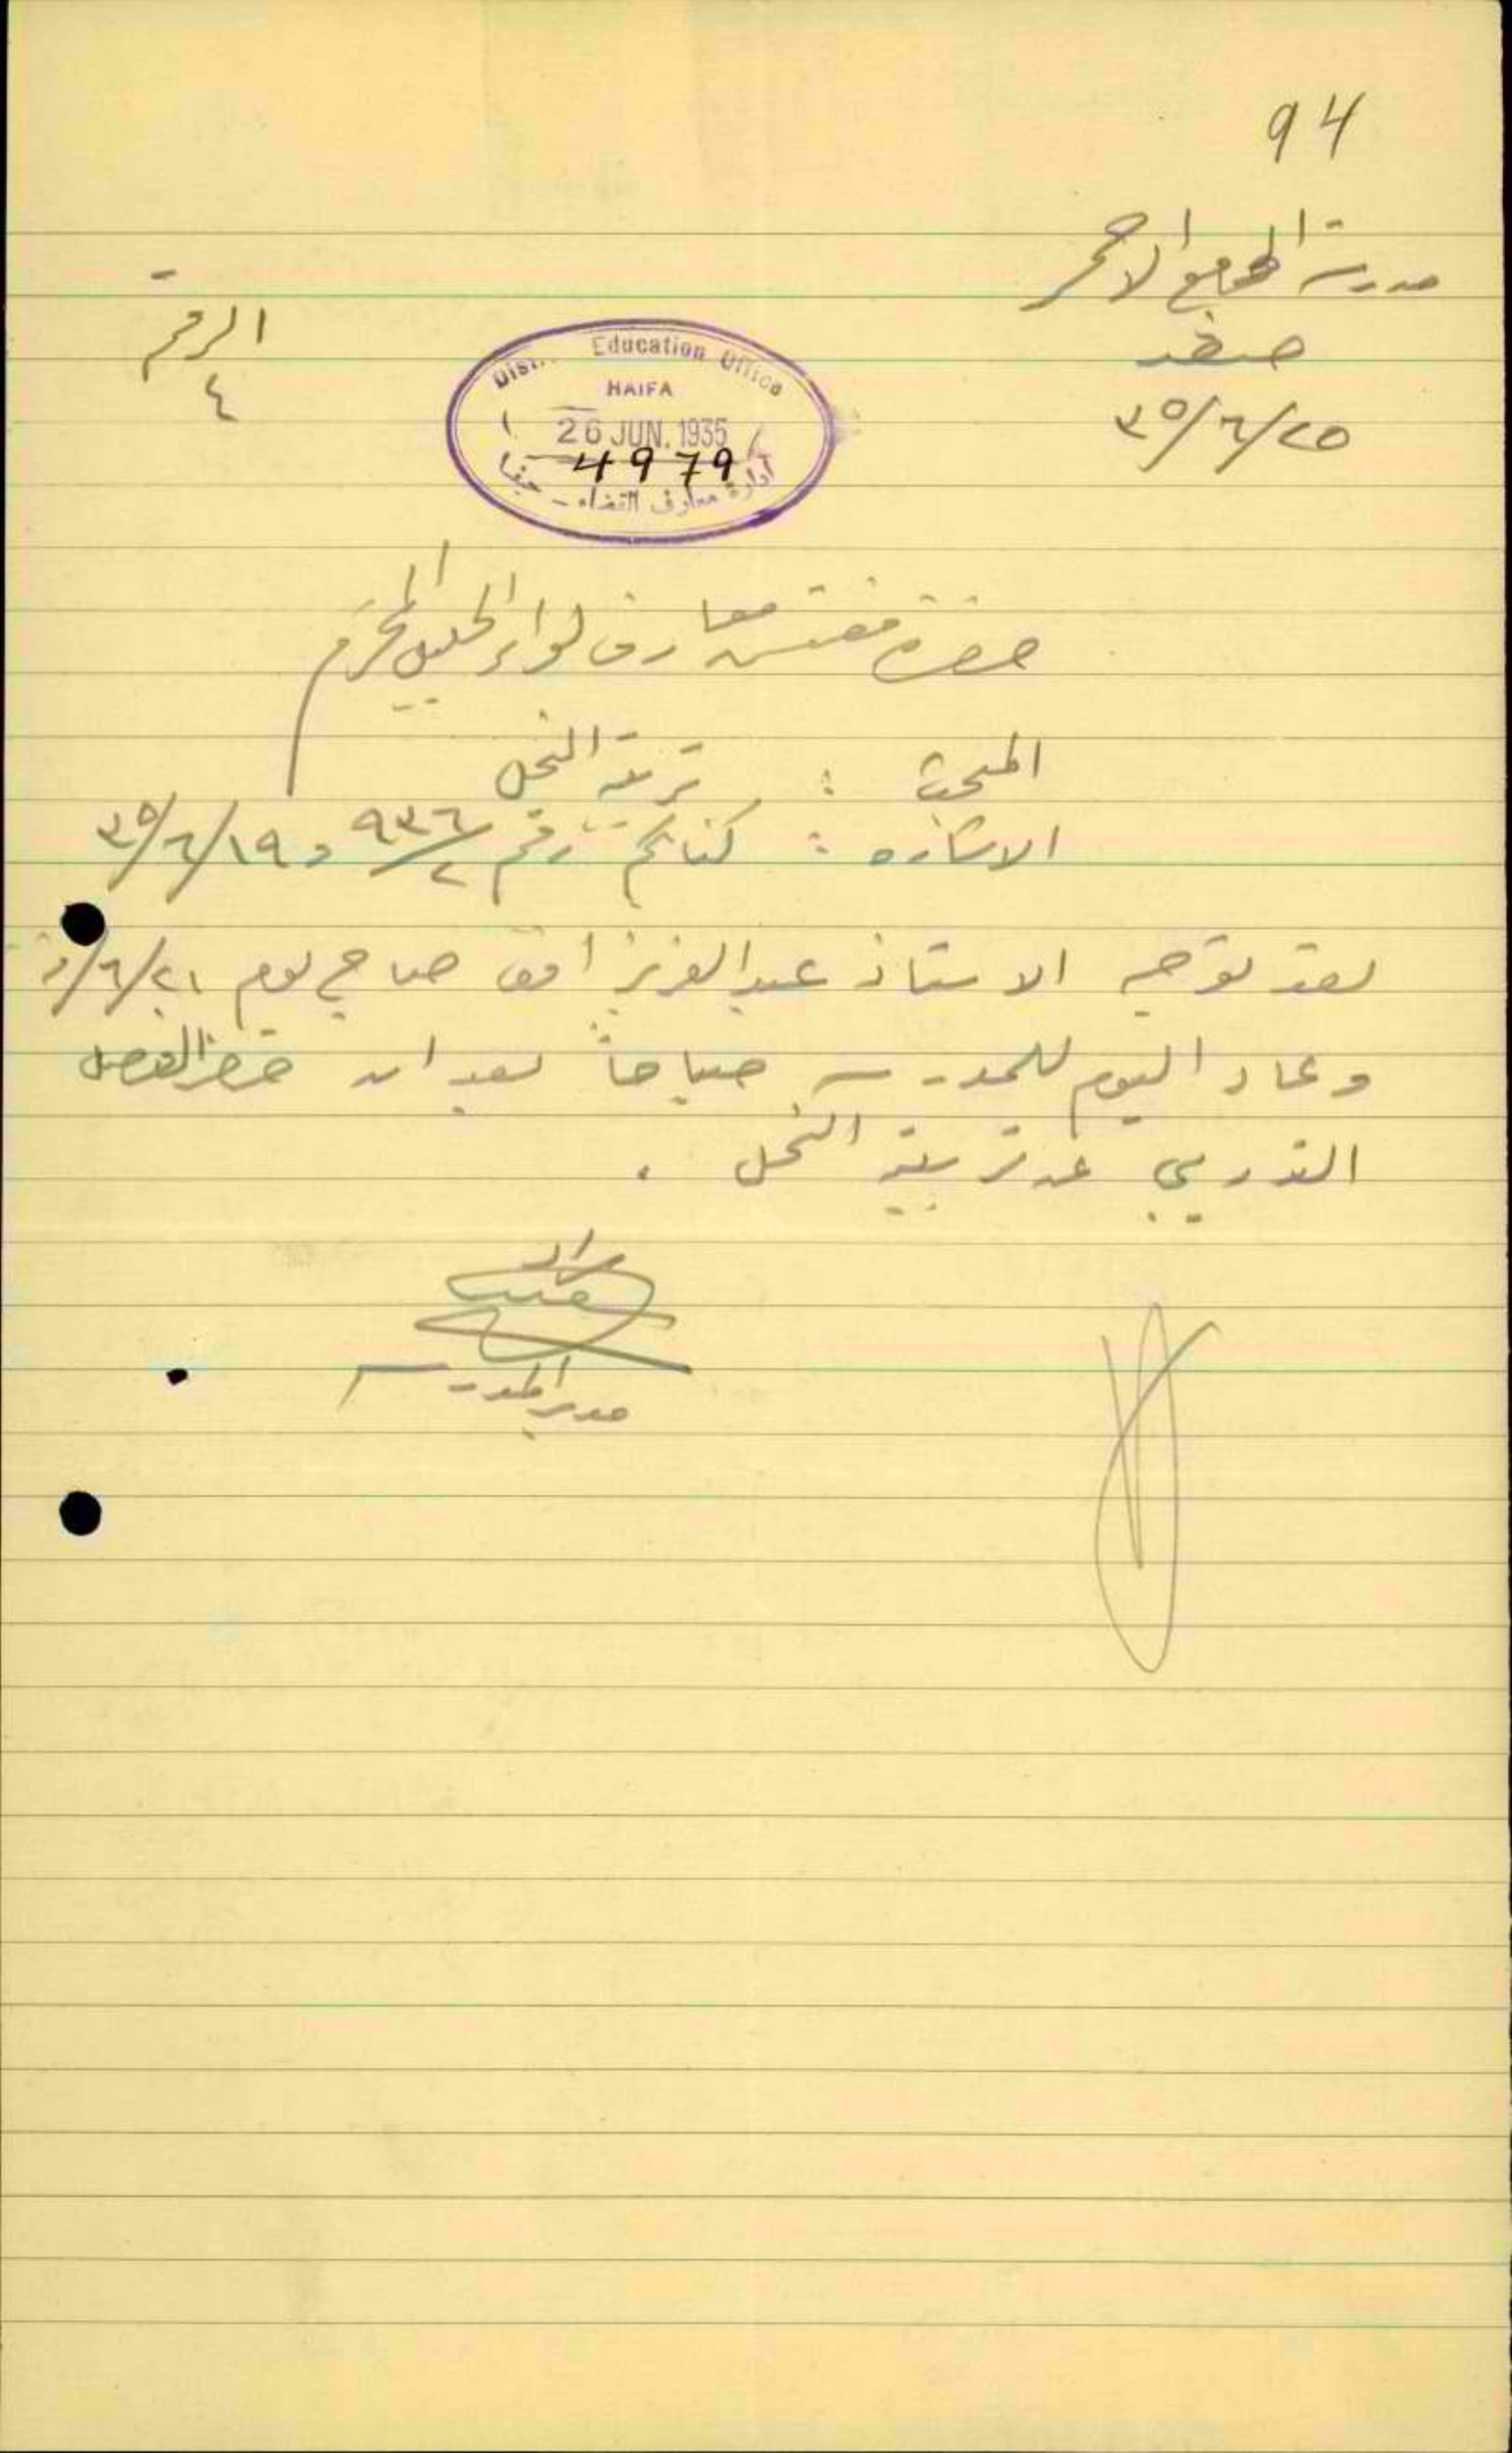 94
مدرسة الجامع الاحمر
صفد
٢٥/٦/٣٥
الرقم
٤
District Education Office
HAIFA
26 JUN. 1935
4979
ادارة معارف القضاء - حيفا
حضرة مفتش معارف لواء الجليل المحترم
المبحث : تربية النحل
الاشاره : كتابكم رقم ٩٣٦/٢ و ١٩/٦/٣٥
لقد توجه الاستاذ عبد العزيز صباح يوم ٢١/٦/
وعاد اليوم للمدرسة صباحاً بعد ان حضر الفصل
التدريبي عن تربية النحل .
مدير المدرسة